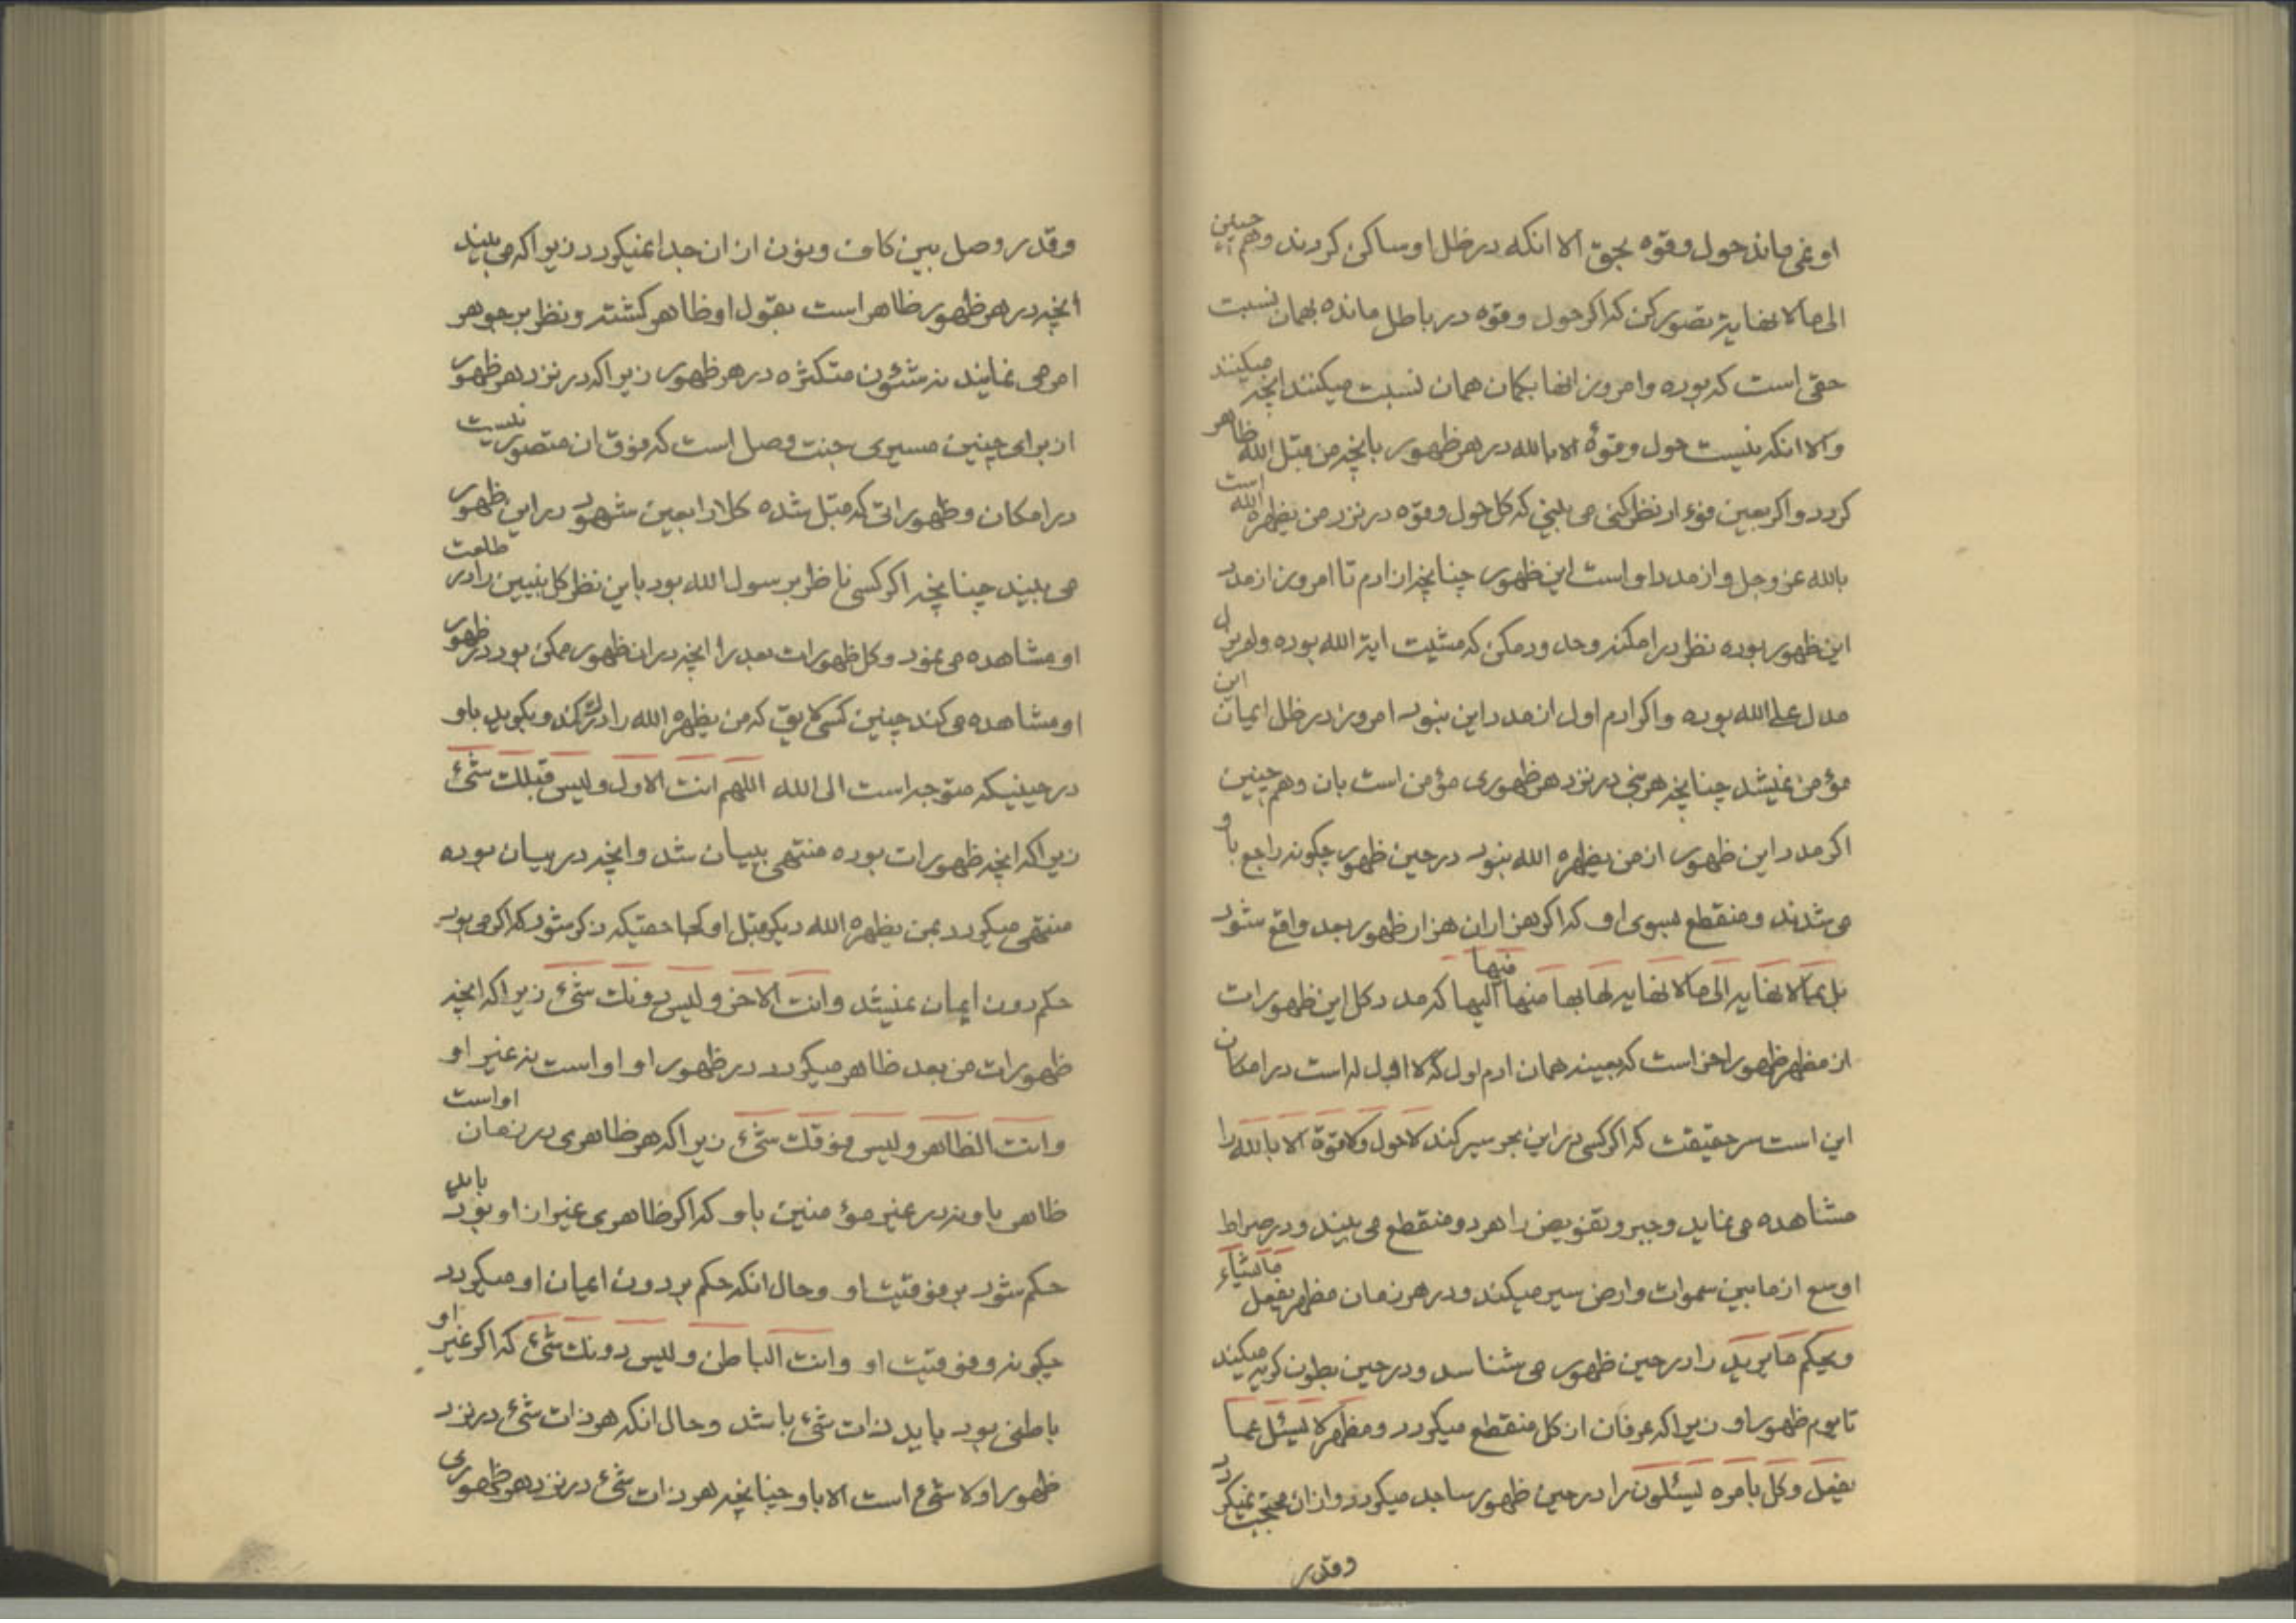 او نمی ماند حول وقوه بحق الا انکه در ظل او ساکن کردند وهم چنین
الی ما لا نهایه تصور کن که اکر حول وقوه در باطل مانده بهمان نسبت
حقی است که بوده وامروز انها بکمان همان نسبت میکنند انچه میکنند
والا انکه نیست حول وقوهٔ الا بالله در هر ظهور بانچه من قبل الله ظاهر
کردد واکر بعین فؤاد نظر کنی می بینی که کل حول وقوه در نزد من یظهره الله است
بالله عز وجل واز مدد او است این ظهور چنانچه از ادم تا امروز از مدد
این ظهور بوده نظر در امکنه وحد ودمکن که مشیت ایة الله بوده ولم یزل
مدل علی الله بوده واکر ادم اول از مدد این نبود امروز در ظل ایمان این
مؤمن نمیشد چنانچه هر نبی در نزد هر ظهوری مؤمن است بان وهم چنین
اکر مدد این ظهور از من یظهره الله نبود در حین ظهور چکونه راجع باو
می شدند ومنقطع بسوی او که اکر هزاران هزار ظهور بعد واقع شود
بل بما لا نهایه الی ما لا نهایه لها بها منها الیها فیها که مدد کل این ظهورات
از مظهر ظهور اخر است که بعینه همان ادم اول که لا اول له است در امکان
این است سر حقیقت که اکر کسی در این بحر سیر کند لا حول ولا قوة الا بالله را
مشاهده می نماید وجبر وتفویض را هر دو منقطع می بیند ودر صراط
اوسع از مابین سموات وارض سیر میکند ودر هر زمان مظهر یفعل ما یشاء
ویحکم ما یرید را در حین ظهور می شناسد ودر حین بطون کریه میکند
تا یوم ظهور او زیرا که عرفان از کل منقطع میکردد ومظهر لا یسئل عما
یفعل وکل بامره یسئلون را در حین ظهور ساجد میکردد واز ان محتجب نمیکردد
وقدر
وقدر وصل بین کاف ونون از ان جدا نمیکردد زیرا که می بیند
انچه در هر ظهور ظاهر است بقول او ظاهر کشته ونظر بر جوهر
امر می نمایند نه شئون متکثره در هر ظهور زیرا که در نزد هر ظهور
از برای چنین مسیری جنت وصل است که فوق ان متصور نیست
در امکان وظهوراتی که قبل شده کلا را بعین شهود در این ظهور
می بیند چنانچه اکر کسی ناظر بر سول الله بود باین نظر کل نبیین را در طلعت
او مشاهده می نمود وکل ظهورات بعد را انچه در ان ظهور ممکن بود در ظهور
او مشاهده می کند چنین کسی لایق که من یظهره الله را درک کند وبکوید باو
در حینیکه متوجه است الی الله اللهم انت الاول ولیس قبلک شئ
زیرا که انچه ظهورات بوده منتهی ببیان شد وانچه در بیان بوده
منتهی میکردد بمن یظهره الله دیکر قبل او کجا حقیکه ذکر شود که اکر می بود
حکم دون ایمان نمیشد وانت الاخر ولیس دونک شئ زیرا که انچه
ظهورات من بعد ظاهر میکردد در ظهور او او است نه غیر او
وانت الظاهر ولیس فوقک شئ زیرا که هر ظاهری در زمان او است
ظاهر باو نه در غیر مؤمنین باو که اکر ظاهری غیر از او بود باید
حکم شود بر فوقیت او وحال انکه حکم بر دون ایمان او میکردد
چکونه وفوقیت او وانت الباطن ولیس دونک شئ که اکر غیر او
باطنی بود باید ذات شئ باشد وحال انکه هر ذات شئ در نزد
ظهور او لا شئ است الا باو چنانچه هر ذات شئ در نزد هر ظهوری